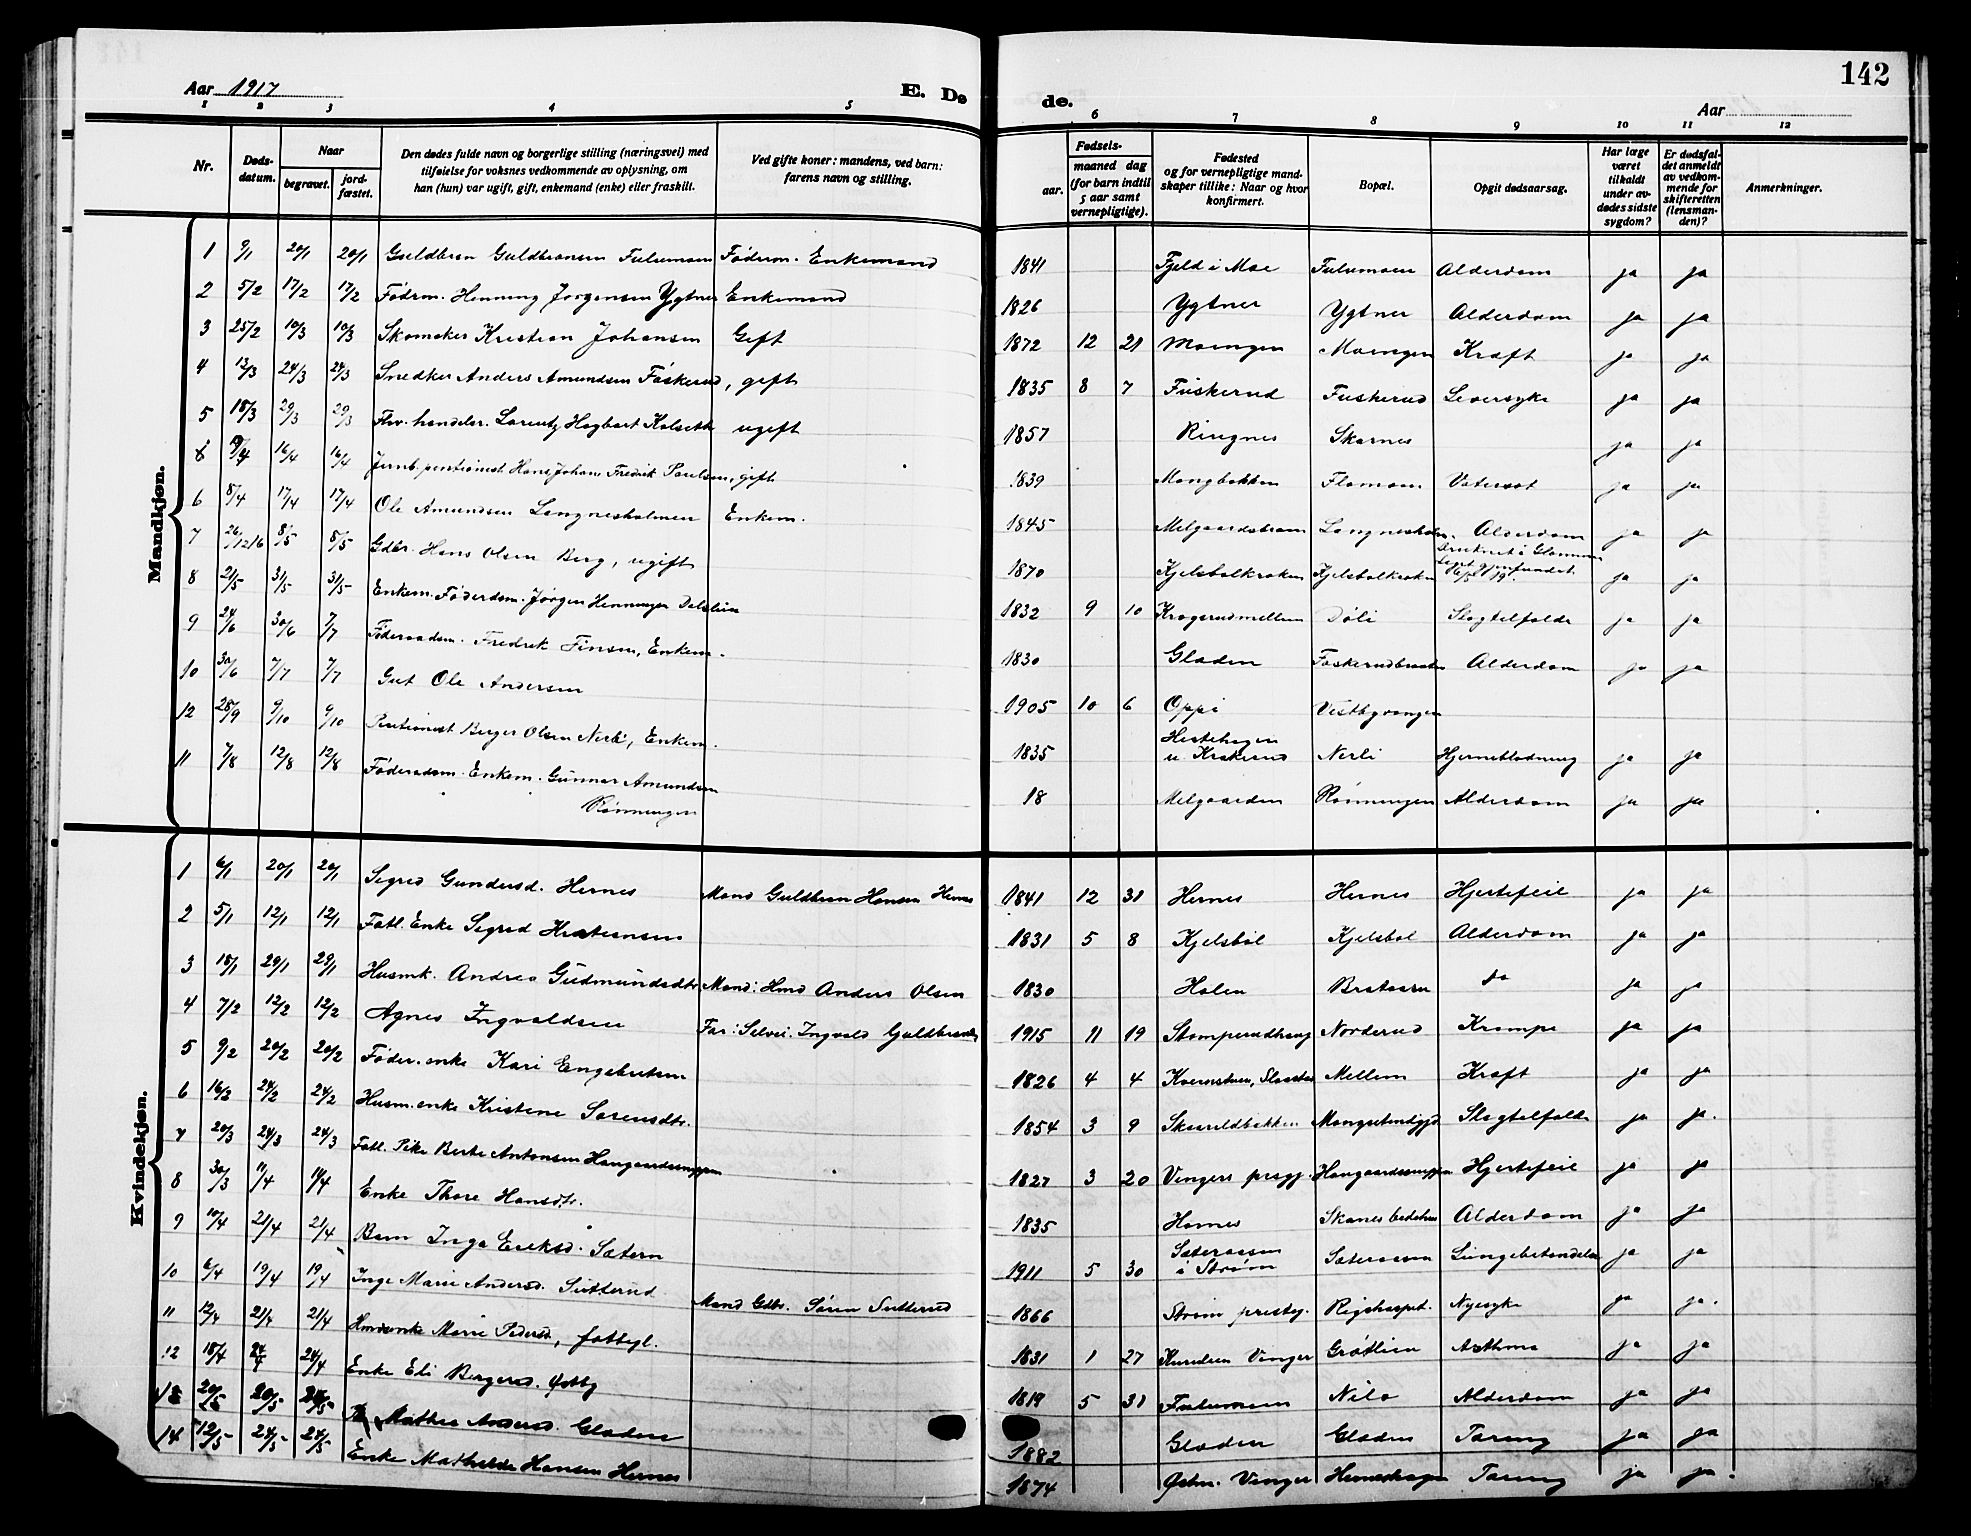 142
Aar 1917
E. Dø
de.
Aar
1 2 3 4 5
6 7 8 9 10 11 12
Nr.
Døds-
datum.
Naar
begravet.
jord-
fæstet.
Den dødes fulde navn og borgerlige stilling (næringsvei) med
tilføielse for voksnes vedkommende av oplysning, om
han (hun) var ugift, gift, enkemand (enke) eller fraskilt.
Ved gifte koner: mandens, ved barn:
farens navn og stilling.
Fødsels-
aar.
maaned dag
(for barn indtil
5 aar samt
vernepligtige).
Fødested
og for vernepligtige mand-
skaper tillike: Naar og hvor
konfirmert.
Bopæl.
Opgit dødsaarsag.
Har læge
været
tilkaldt
under av-
dødes sidste
sygdom?
Er dødsfal-
det anmeldt
av vedkom-
mende for
skifteretten
(lensman-
den)?
Anmerkninger.
Mandkjøn.
1 9/1 20/1 20/1 Guldbran Guldbransen Fulumoen Føderm. Enkemand 1841 Fjeld i Moe Fulumoen Alderdom ja ja
2 5/2 17/2 17/2 Føderm. Henning Jørgensen Ygtner Enkemand 1826 Ygtner Ygtner Alderdom ja ja
3 25/2 10/3 10/3 Skomaker Kristian Johansen Gift 1872 12 21 Moengen Moengen Kræft ja ja
4 13/3 24/3 24/3 Snedker Anders Amundsen Fuskerud, gift 1835 8 7 Fuskerud Fuskerud Leversyke ja ja
5 18/3 29/3 29/3 Fhv. handelsr. Lorentz Hagbart Kolseth ugift 1857 Ringnes Skarnes ja ja
16/4 16/4 Jernb. pentionist Hans Johan Fredrik Paulsen, gift 1839 Mangbakken Flomoen Vatersot ja ja
6 8/4 17/4 17/4 Ole Amundsen Langnesholmen Enkem. 1845 Langnesholm. Alderdom ja ja
7 26/12 16 8/5 8/5 Gdbr. Hans Olsen Berg, ugift 1870 Kjelsbølkroken Kjelsbølkroken Druknet i Glommen ja ja
8 21/5 31/5 31/5 Enkem. Føderdm. Jørgen Henningsen 1832 9 10 Døli Slagtilfælde ja ja
9 24/6 30/6 7/7 Føderaadsm. Fredrik Finsen, Enkem. 1830 Gladen Alderdom ja ja
10 30/6 7/7 7/7 Gut Ole Andersen 1905 10 6 Oppi Vestbyvangen
12 28/9 9/10 9/10 Pentionist Berger Olsen Nerli, Enkem. 1835 Hestehagen
u. Krakerud Nerli Hjerneblødning ja ja
11 7/8 12/8 12/8 Føderaadsm. Enkem. Gunnar Amundsen
Rønningen 18 Melgaarden Rønningen Alderdom ja ja
Kvindekjøn.
1 6/1 20/1 20/1 Sigrid Gundersd. Hernes Mand Guldbran Hansen Hernes 1841 12 31 Hernes Hernes Hjertefeil ja ja
2 5/1 12/1 12/1 Fatl. Enke Sigrid Kristiansen 1831 5 8 Kjelsbøl Kjelsbøl Alderdom ja ja
3 18/1 29/1 29/1 Husmk. Andrea Gudmundsdtr. Mand: Hmd Anders Olsen 1830 Holen Brataasen do ja ja
4 7/2 12/2 12/2 Agnes Ingvaldsen Far: Selvei. Ingvald Guldbrandsen 1915 11 19 Stomperudhaug Norderud Krampe ja ja
5 9/2 20/2 20/2 Føder. enke Kari Engebretsen 1826 4 4 Mellem Kræft ja ja
6 16/2 24/2 24/2 Husm. enke Kristine Sørensdtr. 1854 3 9 Slagtilfælde ja ja.
7 20/3 24/3 24/3 Fatl. Pike Berte Antonsen Haugaardssnippen 1827 3 20 Vingers prsgj. Haugaardssnippen Hjertefeil ja ja
8 30/3 11/4 11/4 Enke Thore Hansdtr. 1835 Hernes Alderdom ja ja
9 10/4 21/4 21/4 Barn Inga Eriksd. Sætern 1911 5 30 Sæteraasen
i Strøm Sæteraasen Lungebetændelse ja ja
10 6/4 19/4 19/4 Inge Marie Andersd. Sutterud Mand Gdbr. Søren Sutterud 1866 Strøm prestgj. Rigshospit. Nyresyke ja ja.
11 12/4 21/4 21/4 Hmdsenke Marie Pedersd., fattigl. 1831 1 27 Vinger Grøtlien Asthma ja ja
12 18/4 24/4 24/4 Enke Eli Bergersd. 1819 5 31 Fulumoen Nilo Alderdom ja ja
13 20/5 24/5 Mathea Andersd. Gladen 1882 Gladen Gladen Tæring ja ja
14 12/5 24/5 24/5 Enke Mathilde Hansen Hernes 1874 Østm. Vinger Herneshagen Tæring ja ja.